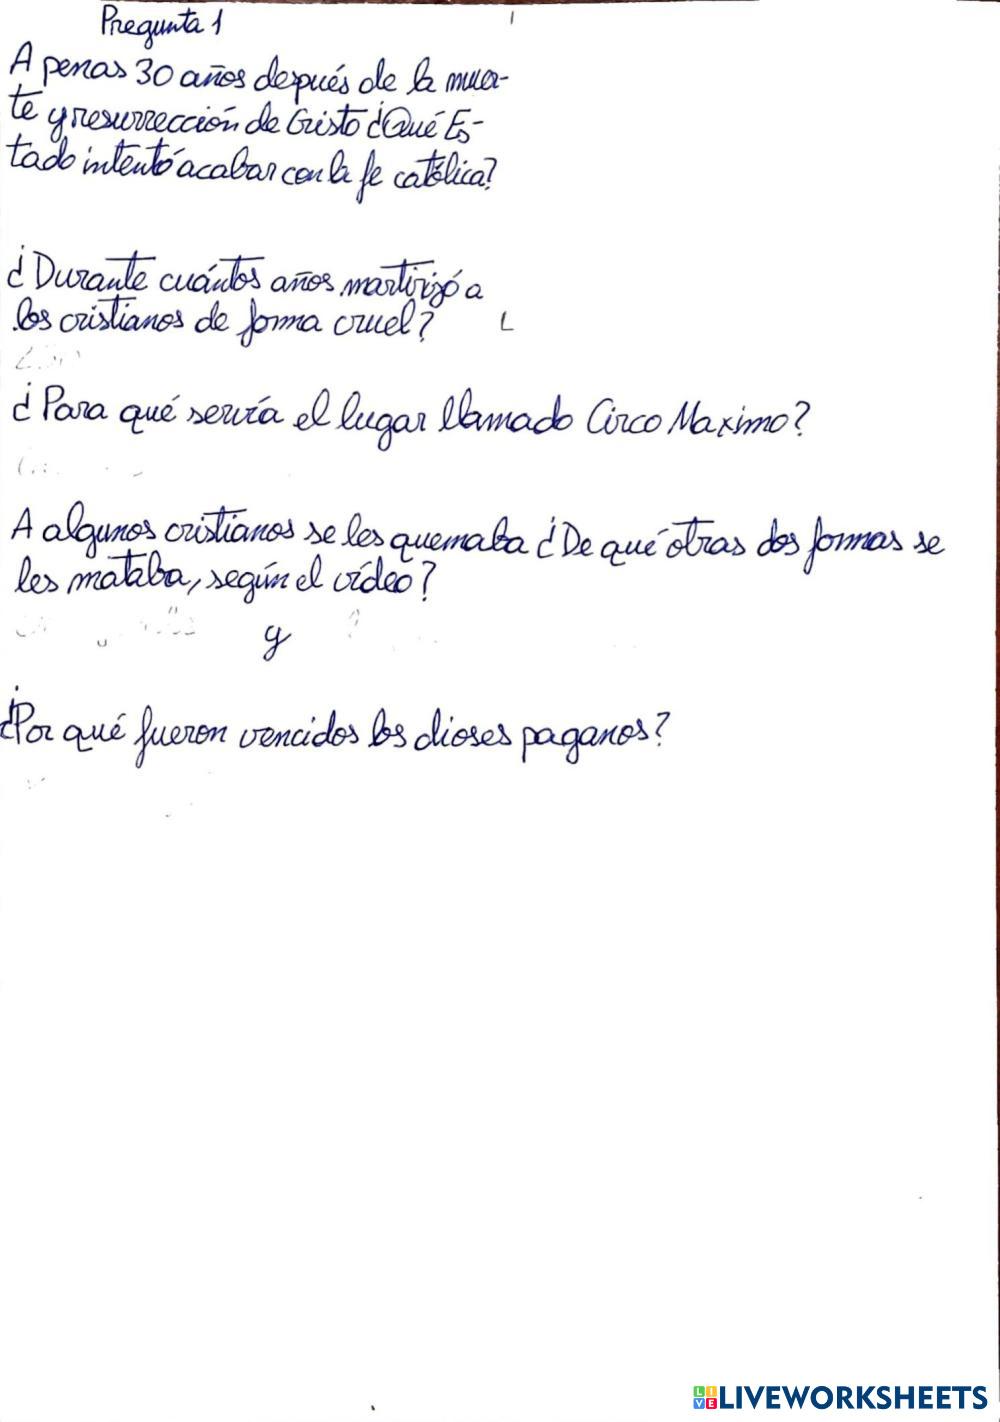 Pregunta 1
A penas 30 años después de la muer-
te y resurrección de Cristo ¿Qué Es-
tado intentó acabar con la fe católica?
¿Durante cuántos años martirizó a
los cristianos de forma cruel?
¿Para qué servía el lugar llamado Circo Maximo?
A algunos cristianos se les quemaba ¿De qué otras dos formas se
les mataba, según el vídeo?
y
¿Por qué fueron vencidos los dioses paganos?
LIVEWORKSHEETS